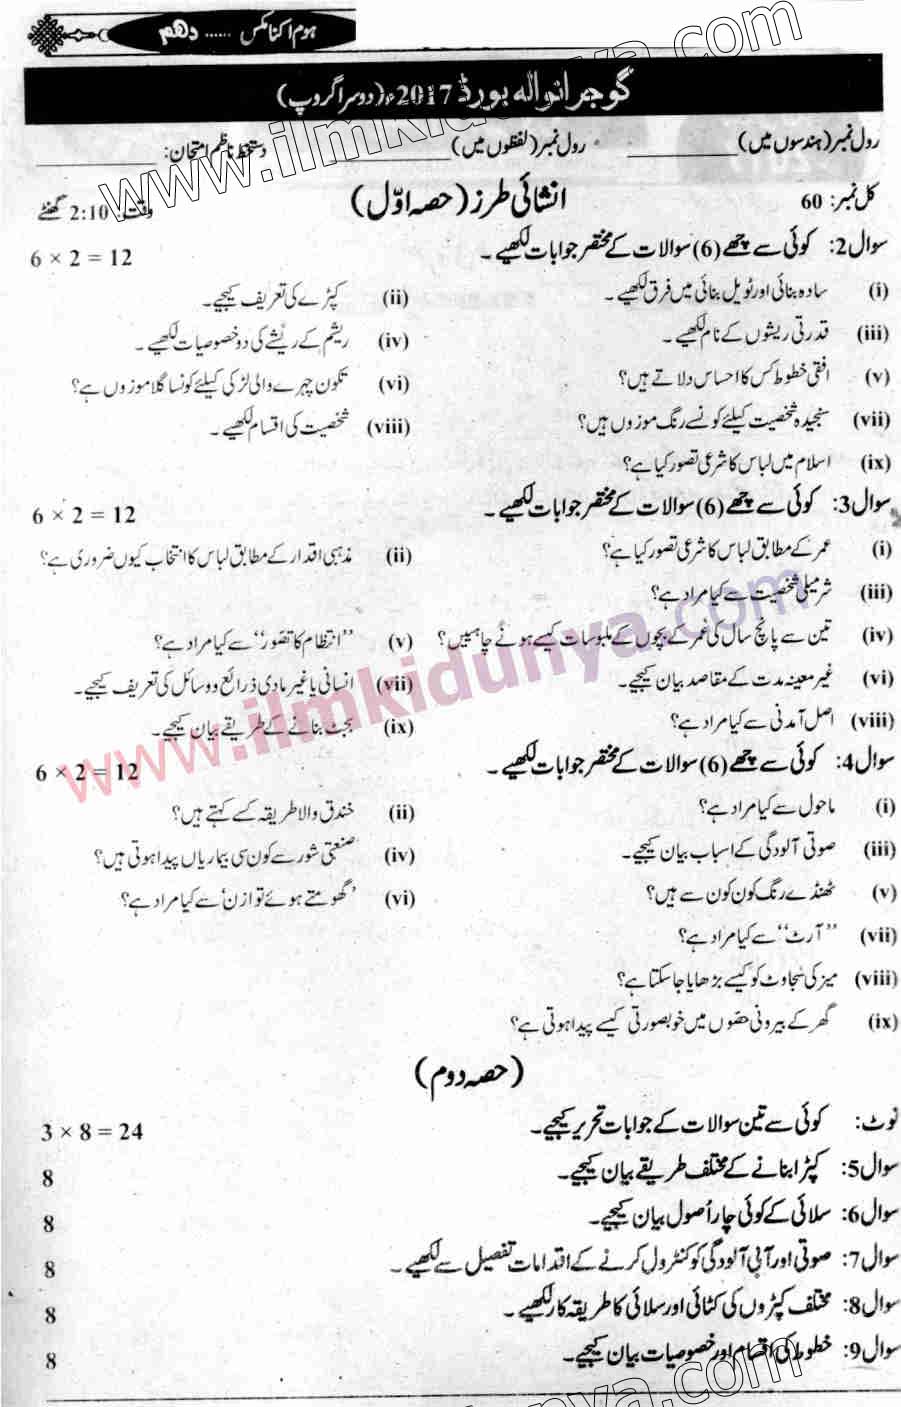 ہوم اکنامکس ...... دھم
گوجرانوالہ بورڈ 2017ء (دوسرا گروپ)
رول نمبر (ہندسوں میں) ____________ رول نمبر (لفظوں میں) ____________ دستخط ناظم امتحان: ____________
کل نمبر: 60 انشائی طرز (حصہ اوّل) وقت: 2:10 گھنٹے
سوال 2: کوئی سے چھے (6) سوالات کے مختصر جوابات لکھیے۔ 6 × 2 = 12
(i) سادہ بنائی اور ٹویل بنائی میں فرق لکھیے۔ (ii) کپڑے کی تعریف کیجیے۔
(iii) قدرتی ریشوں کے نام لکھیے۔ (iv) ریشم کے ریشے کی دو خصوصیات لکھیے۔
(v) افقی خطوط کس کا احساس دلاتے ہیں؟ (vi) تکون چہرے والی لڑکی کیلئے کونسا گلا موزوں ہے؟
(vii) سنجیدہ شخصیت کیلئے کونسے رنگ موزوں ہیں؟ (viii) شخصیت کی اقسام لکھیے۔
(ix) اسلام میں لباس کا شرعی تصور کیا ہے؟
سوال 3: کوئی سے چھے (6) سوالات کے مختصر جوابات لکھیے۔ 6 × 2 = 12
(i) عمر کے مطابق لباس کا شرعی تصور کیا ہے؟ (ii) مذہبی اقدار کے مطابق لباس کا انتخاب کیوں ضروری ہے؟
(iii) شرمیلی شخصیت سے کیا مراد ہے؟
(iv) تین سے پانچ سال کی عمر کے بچوں کے ملبوسات کیسے ہونے چاہییں؟ (v) ’’انتظام کا تصّور‘‘ سے کیا مراد ہے؟
(vi) غیر معینہ مدت کے مقاصد بیان کیجیے۔ (vii) انسانی یا غیر مادی ذرائع و وسائل کی تعریف کیجیے۔
(viii) اصل آمدنی سے کیا مراد ہے؟ (ix) بجٹ بنانے کے طریقے بیان کیجیے۔
سوال 4: کوئی سے چھے (6) سوالات کے مختصر جوابات لکھیے۔ 6 × 2 = 12
(i) ماحول سے کیا مراد ہے؟ (ii) خندق والا طریقہ کسے کہتے ہیں؟
(iii) صوتی آلودگی کے اسباب بیان کیجیے۔ (iv) صنعتی شور سے کون سی بیماریاں پیدا ہوتی ہیں؟
(v) ٹھنڈے رنگ کون کون سے ہیں؟ (vi) ’گھومتے ہوئے توازن‘ سے کیا مراد ہے؟
(vii) ’’آرٹ‘‘ سے کیا مراد ہے؟
(viii) میز کی سجاوٹ کو کیسے بڑھایا جا سکتا ہے؟
(ix) گھر کے بیرونی حصّوں میں خوبصورتی کیسے پیدا ہوتی ہے؟
(حصہ دوم)
نوٹ: کوئی سے تین سوالات کے جوابات تحریر کیجیے۔ 3 × 8 = 24
سوال 5: کپڑا بنانے کے مختلف طریقے بیان کیجیے۔ 8
سوال 6: سلائی کے کوئی چار اُصول بیان کیجیے۔ 8
سوال 7: صوتی اور آبی آلودگی کو کنٹرول کرنے کے اقدامات تفصیل سے لکھیے۔ 8
سوال 8: مختلف کپڑوں کی کٹائی اور سلائی کا طریقہ کار لکھیے۔ 8
سوال 9: خطوط کی اقسام اور خصوصیات بیان کیجیے۔ 8
www.ilmkidunya.com
www.ilmkidunya.com